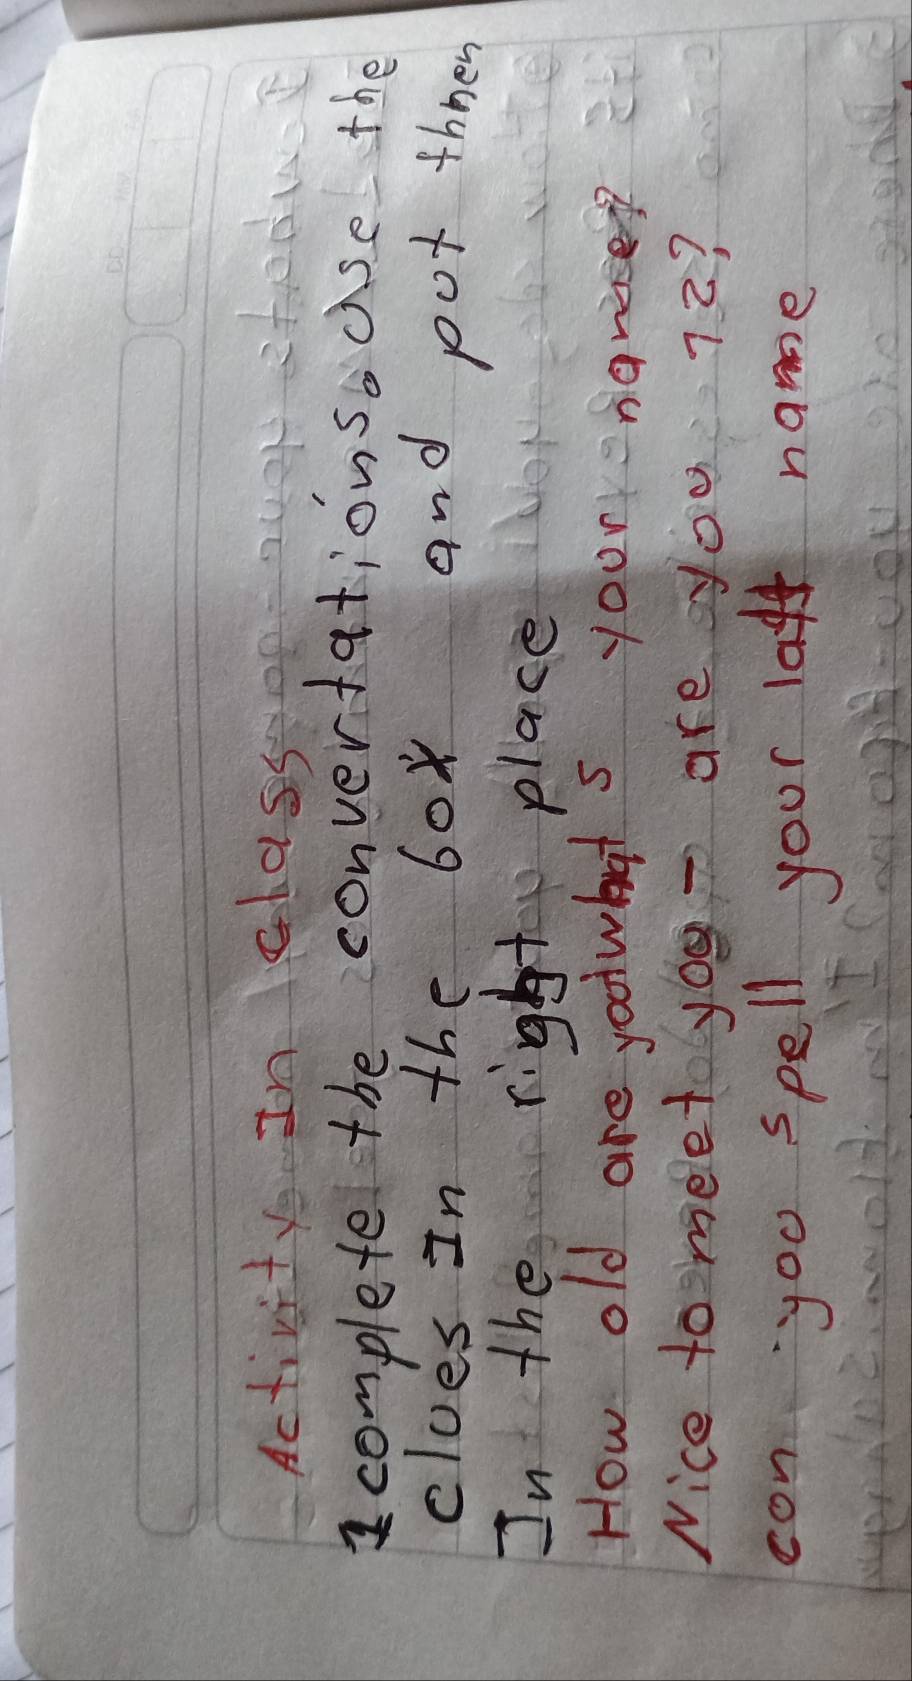 Activity In Class
1 complete the convertations. use the
clues In the box and put thnen
In the right place
How old are you what s your name?
Nice to meet you - are you 12?
con you spell your last name